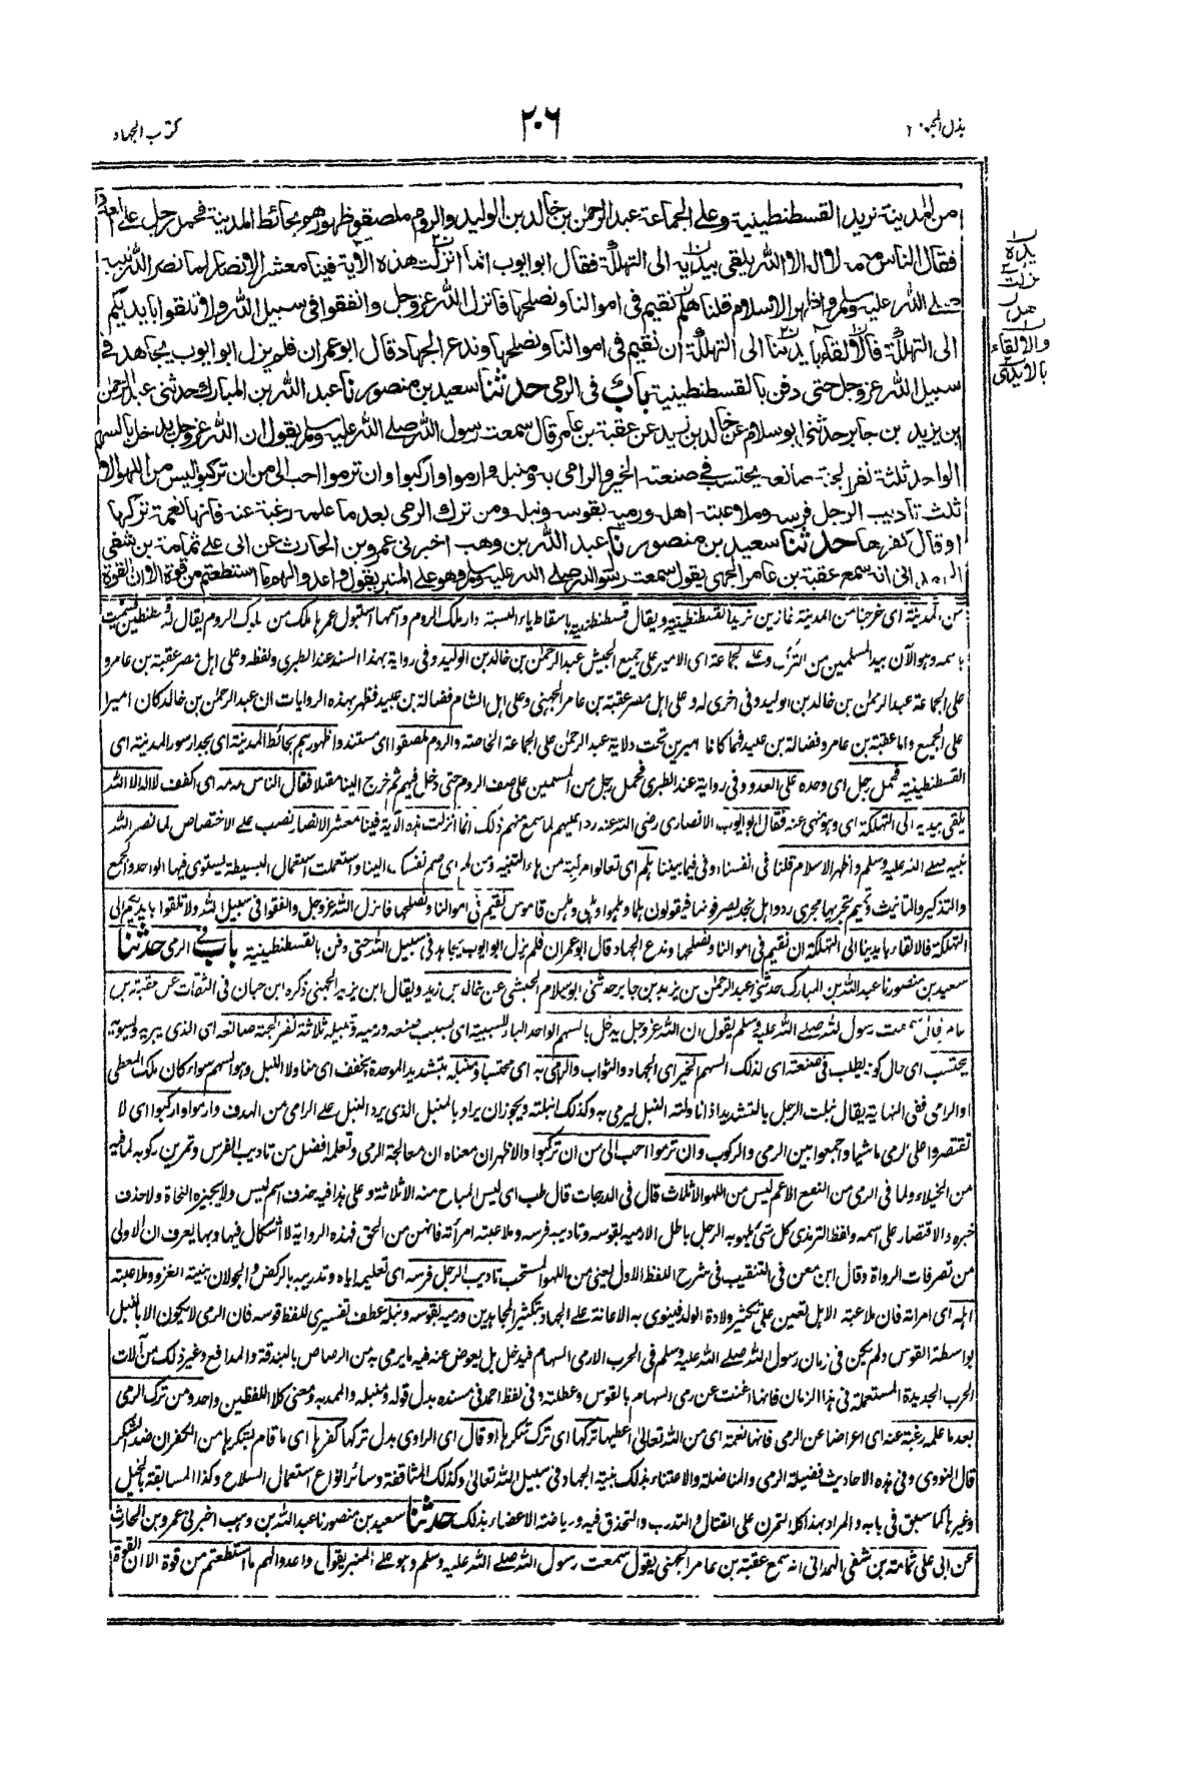 بذل المجهود
٢٠٦
كتاب الجهاد
من المدينة نريد القسطنطينية وعلى الجماعة عبد الرحمن بن خالد بن الوليد والروم ملصقو ظهورهم بحائط المدينة فحمل رجل على العدو
فقال الناس مه مه لا اله الا الله يلقى بيديه الى التهلكة فقال ابو ايوب انما انزلت هذه الآية فينا معشر الانصار لما نصر الله نبيه
صلے الله عليه وسلم واظهر الاسلام قلنا هلم نقيم فى اموالنا ونصلحها فانزل الله عز وجل وانفقوا فى سبيل الله ولا تلقوا بايديكم
الى التهلكة فالالقاء بايدينا الى التهلكة ان نقيم فى اموالنا ونصلحها وندع الجهاد قال ابو عمران فلم يزل ابو ايوب يجاهد فى
سبيل الله عز وجل حتى دفن بالقسطنطينية باب فى الرمى حدثنا سعيد بن منصور نا عبد الله بن المبارك حدثنى عبد الرحمن
بن يزيد بن جابر حدثنى ابو سلام عن خالد بن زيد عن عقبة بن عامر قال سمعت رسول الله صلے الله عليه وسلم يقول ان الله عز وجل يدخل بالسهم
الواحد ثلثة نفر الجنة صانعه يحتسب فى صنعته الخير والرامى به ومنبله وارموا واركبوا وان ترموا احب الى من ان تركبوا ليس من اللهو الا
ثلث تاديب الرجل فرسه وملاعبته اهله ورميه بقوسه ونبله ومن ترك الرمى بعد ما علمه رغبة عنه فانها نعمة تركها
او قال كفرها حدثنا سعيد بن منصور نا عبد الله بن وهب اخبرنى عمرو بن الحارث عن ابى على ثمامة بن شفى
الهمدانى انه سمع عقبة بن عامر الجهنى يقول سمعت رسول الله صلے الله عليه وسلم وهو على المنبر يقول واعدوا لهم ما استطعتم من قوة الا ان القوة
يديه
نزلت
هذه
والالقاء
بالايدى
من المدينة اى خرجنا من المدينة غازين نريد القسطنطينية ويقال قسطنطينة باسقاط ياء النسبة دار ملك الروم واسمها استنبول عمرها ملك من ملوك الروم يقال له قسطنطين فسميت
باسمه وهو الآن بيد المسلمين من الترك وعلى الجماعة اى الامير على جميع الجيش عبد الرحمن بن خالد بن الوليد وفى رواية بهذا السند عند الطبرى ولفظه وعلى اهل مصر عقبة بن عامر و
على الجماعة عبد الرحمن بن خالد بن الوليد وفى اخرى له وعلى اهل مصر عقبة بن عامر الجهنى وعلى اهل الشام فضالة بن عبيد فظهر بهذه الروايات ان عبد الرحمن بن خالد كان اميرا
على الجميع واما عقبة بن عامر وفضالة بن عبيد فهما كانا اميرين تحت ولاية عبد الرحمن على الجماعة الخاصة والروم ملصقوا اى مستندوا ظهورهم بحائط المدينة اى بجدار سور المدينة اى
القسطنطينية فحمل رجل اى وحده على العدو وفى رواية عند الطبرى فحمل رجل من المسلمين على صف الروم حتى دخل فيهم ثم خرج الينا مقبلا فقال الناس مه مه اى اكفف لا اله الا الله
يلقى بيديه الى التهلكة اى وهو منهى عنه فقال ابو ايوب الانصارى رضى الله عنه ردا عليهم لما سمع منهم ذلك انما انزلت هذه الآية فينا معشر الانصار نصب على الاختصاص لما نصر الله
نبيه صلے الله عليه وسلم واظهر الاسلام قلنا فى انفسنا وفى فيما بيننا هلم اى تعالوا مركبة من هاء التنبيه ومن لم اى ضم نفسك الينا واستعملت استعمال البسيطة يستوى فيها الواحد والجمع
والتذكير والتانيث وتميم تجريها مجرى رد واهل نجد يصرفونها فيقولون هلما وهلموا وهلمى وهلممن قاموس نقيم فى اموالنا ونصلحها فانزل الله عز وجل وانفقوا فى سبيل الله ولا تلقوا بايديكم الى
التهلكة فالالقاء بايدينا الى التهلكة ان نقيم فى اموالنا ونصلحها وندع الجهاد قال ابو عمران فلم يزل ابو ايوب يجاهد فى سبيل الله حتى دفن بالقسطنطينية باب فى الرمى حدثنا
سعيد بن منصور نا عبد الله بن المبارك حدثنى عبد الرحمن بن يزيد بن جابر حدثنى ابو سلام الحبشى عن خالد بن زيد ويقال ابن يزيد الجهنى ذكره ابن حبان فى الثقات عن عقبة بن
عامر قال سمعت رسول الله صلے الله عليه وسلم يقول ان الله عز وجل يدخل بالسهم الواحد الباء للسببية اى بسبب صنعه ورميه وتنبيله ثلاثة نفر الجنة صانعه اى الذى يبريه ويسويه
يحتسب اى حال كونه يطلب فى صنعته اى لذلك السهم الخير اى الجهاد والثواب والرامى به اى محتسبا ومنبله بتشديد الموحدة ويخفف اى مناولا النبل وهو السهم سواء كان ملك المعطى
او الرامى ففى النهاية يقال نبلت الرجل بالتشديد اذا ناولته النبل ليرمى به وكذلك انبلته ويجوز ان يراد بالمنبل الذى يرد النبل على الرامى من الهدف وارموا واركبوا اى لا
تقتصروا على الرمى ماشيا واجمعوا بين الرمى والركوب وان ترموا احب الى من ان تركبوا والاظهر ان معناه ان معالجة الرمى وتعلمه افضل من تاديب الفرس وتمرين ركوبه لما فيه
من الخيلاء ولما فى الرمى من النفع الاعم ليس من اللهو الا ثلاث قال فى الدرجات قال طب اى ليس المباح منه الا ثلاثة وعلى هذا فيه حذف اسم ليس ولا يجيزه النحاة ولا حذف
خبره والاقتصار على اسمه ولفظ الترمذى كل شئ يلهو به الرجل باطل الا رميه بقوسه وتاديبه فرسه وملاعبته امرأته فانهن من الحق فهذه الرواية لا اشكال فيها وبها يعرف ان الاولى
من تصرفات الرواة وقال ابن معن فى التنقيب فى شرح اللفظ الاول يعنى من اللهو المستحب تاديب الرجل فرسه اى تعليمه اياه وتدريبه بالركض والجولان بنية الغزو وملاعبته
اهله اى امرأته فان ملاعبة الاهل تعين على تكثير ولادة الولد فينوى به الاعانة على الجهاد بتكثير المجاهدين ورميه بقوسه ونبله عطف تفسيرى للفظ قوسه فان الرمى لا يكون الا بالنبل
بواسطة القوس ولم يكن فى زمان رسول الله صلے الله عليه وسلم فى الحرب الا رمى السهام فيدخل بل يعوض عنه فيه ما يرمى به من الرصاص بالبندقة والمدافع وغير ذلك من آلات
الحرب الجديدة المستعملة فى هذا الزمان فانها اغنت عن رمى السهام بالقوس وعطلته وفى لفظ احمد فى مسنده بدل قوله ومنبله والممد به ومعنى كلا اللفظين واحد ومن ترك الرمى
بعد ما علمه رغبة عنه اى اعراضا عن الرمى فانها نعمة اى من الله تعالى اعطيها تركها اى ترك شكرها او قال اى الراوى بدل تركها كفرها اى ما قام بشكرها من الكفران ضد الشكر
قال النووى وفى هذه الاحاديث فضيلة الرمى والمناضلة والاعتناء بذلك بنية الجهاد فى سبيل الله تعالى وكذلك المثاقفة وسائر انواع استعمال السلاح وكذا المسابقة بالخيل
وغيرها كما سبق فى بابه والمراد بهذا كله التمرن على القتال والتدرب والتحذق فيه ورياضة الاعضاء بذلك حدثنا سعيد بن منصور نا عبد الله بن وهب اخبرنى عمرو بن الحارث
عن ابى على ثمامة بن شفى الهمدانى انه سمع عقبة بن عامر الجهنى يقول سمعت رسول الله صلے الله عليه وسلم وهو على المنبر يقول واعدوا لهم ما استطعتم من قوة الا ان القوة